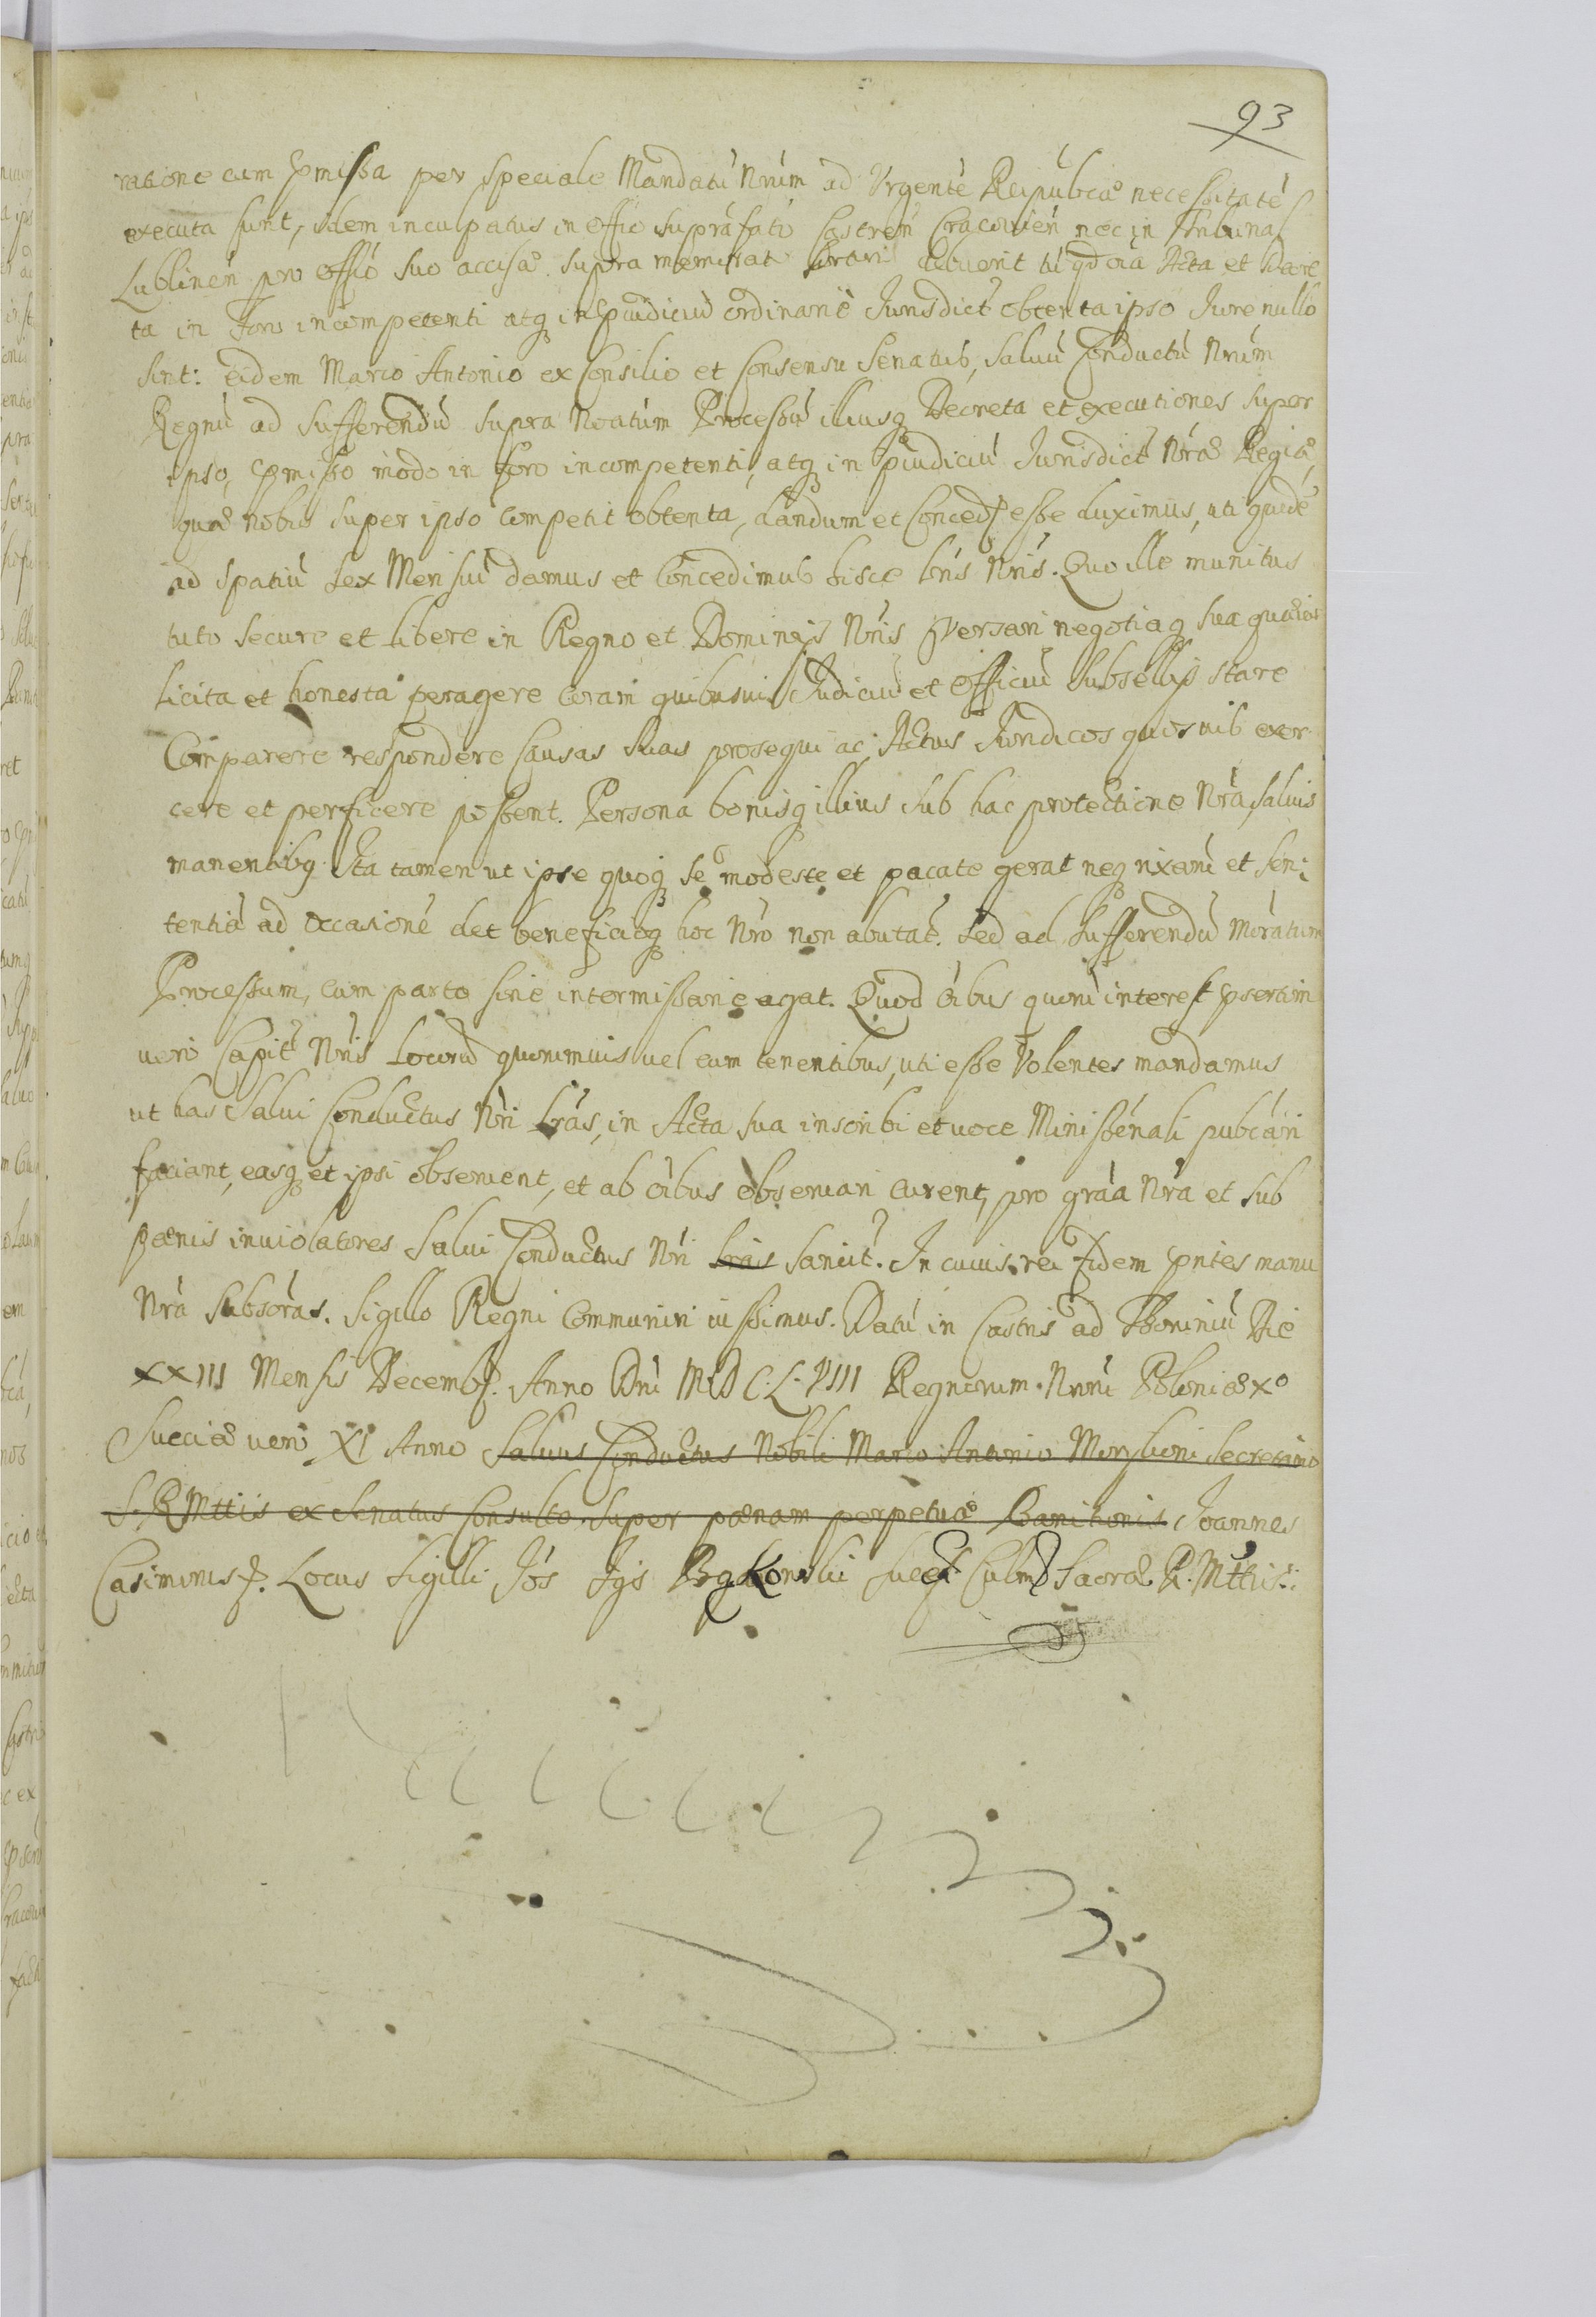 93
ratione cum pmissa per speciale Mandatũ Nrũm ad Urgentẽ Reipubcæ necessitatẽ
executa sunt, idem inculpatus in offio suprafato Castren̄ Cracovien̄ nec in Tribunal
Lublinen̄ pro offio suo accisæ supra memorat debuerit tũ qd oĩa Acta et Decre
ta in Foro incompetenti atq in pỉudiciũ ordinariẽ Jurisdict obtenta ipso Jure nullo
sint: eidem Marco Antonio ex Consilio et Consensu Senatus, salvũ Conductũ Nrũm
Regnũ ad sufferendũ supra Noatum Processũ illiusq Decreta et executiones super
ipso, pmisso modo in foro incompetenti, atq in pỉudiciũ Jurisdict Nræ Regiæ,
quæ nobis super ipso competit obtenta, dandum et Conced esse duximus, uti quidẽ
ad spatiũ sex Mensiũ damus et Concedimus hisce Lris Nris. Quo ille munitus
tuto secure et libere in Regno et Dominijs Nris versari negotiaq sua quævis
licita et honesta peragere coram quibusvis Judiciũ et Officiũ Subsellijs stare
Comparere respondere Causas suas prosequi ac Actus Juridicos quosvis exer
cere et perficere possent. Persona bonisq illius sub hac protectione Nrã salvis
manentibq. Ita tamen ut ipse quoq se modeste et pacate gerat neq rixam et Sen:
tentiã ad occasionẽ det beneficioq hoc Nro non abutat. sed ad sufferendũ Noratum
Processum, cum parte sine intermissione agat. Quod oĩbus quorũ interest psertim
vero Capit Nris Locorũ quorumvis vel eum tenentibus, uti esse Volentes mandamus
ut has Salvi Conductus Nri Lras, in Acta sua inscribi et voce Ministeriali pubcari
faciant, easq et ipsi observent, et ab oĩbus observari curent, pro grãa Nra et sub
pænis in violatores Salvi Conductus Nri Lras Sancit. In cuius rei fidem pntes manu
Nrã Subscras. Sigillo Regni Communiri iussimus. Datũ in Castris ad Thoruniũ Die
XXIII Mensis Decemb. Anno Dni M.D.C.L.VIII Regnorum Nrorũ Poloniæ Xo
Sueciæ vero XI Anno Salvus Conductus Nobili Marco Antonio Secretario
S. R. Mttis ex Senatus Consulto super pænam perpetuæ Banitionis Joannes
Casimirus R. Locus Sigilli Sacræ R. Mttis: